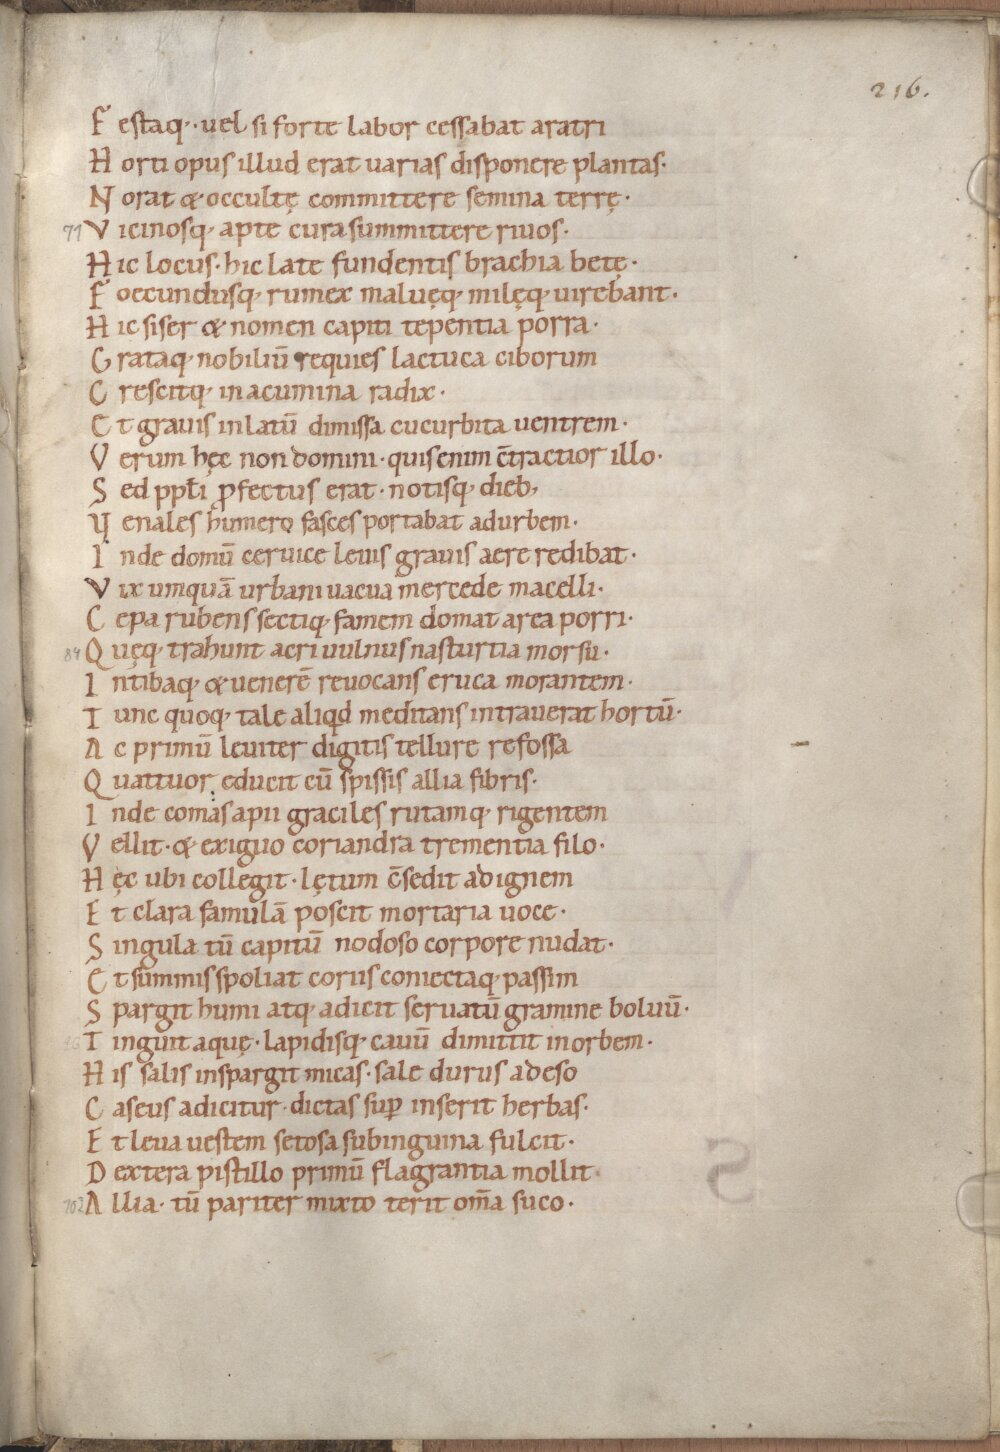 216.
F estaq;· uel si forte labor cessabat aratri
H orti opus illud erat uarias disponere plantas·
N orat & occultę committere semina terrę·
71 V icinosq; apte cura summittere riuos·
H ic locus· hic late fundentis brachia betę·
F oecundusq; rumex maluęq; milęq; uirebant·
H ic siser & nomen capiti tepentia porra·
G rataq; nobiliū requies lactuca ciborum
C rescitq; in acumina radix·
E t grauis in latū dimissa cucurbita uentrem·
V erum hęc non domini· quis enim c̄tractior illo·
S ed ppłi ꝓfectus erat· notisq; dieb;
V enales humero fasces portabat ad urbem·
I nde domū ceruice leuis grauis aere redibat·
V ix umquā urbani uacua mercede macelli·
C epa rubens sectiq; famem domat area porri·
84 Q uęq; trahunt acri uulnus nasturtia morsu·
I ntibaq; & uenerē reuocans eruca morantem·
T unc quoq; tale aliqd meditans intrauerat hortū·
A c primū leuiter digitis tellure refossa
Q uattuor educit cū spissis allia fibris·
I nde comas apii graciles rutamq; rigentem
V ellit· & exiguo coriandra trementia filo·
H ęc ubi collegit· lętum c̄sedit ad ignem
E t clara famulā poscit mortaria uoce·
S ingula tū capitū nodoso corpore nudat·
E t summis spoliat coriis coniectaq; passim
S pargit humi atq; adicit seruatū gramine boluū·
96 T inguit aquę· lapidisq; cauū dimittit in orbem·
H is salis inspargit micas· sale durus adeso
C aseus adicitur· dictas suꝑ inserit herbas·
E t leua uestem setosa sub inguina fulcit·
D extera pistillo primū flagrantia mollit·
102 A llia· tū pariter mixto terit om̄a suco·